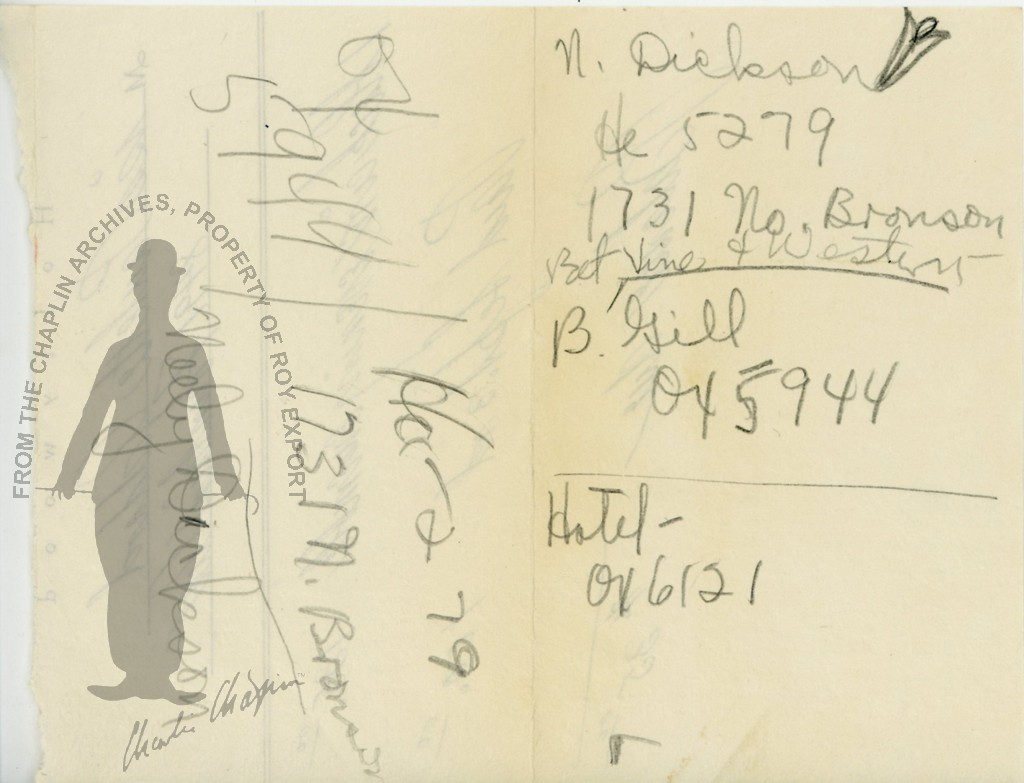 N. Dickson
He 5279
1731 No. Bronson
Bet Vine & Western
B. Gill
OX 5944
Hotel -
OX 6121
OX
5944
Nelly Dickson
1731 N. Bronson
79
FROM THE CHAPLIN ARCHIVES, PROPERTY OF ROY EXPORT
Charlie Chaplin